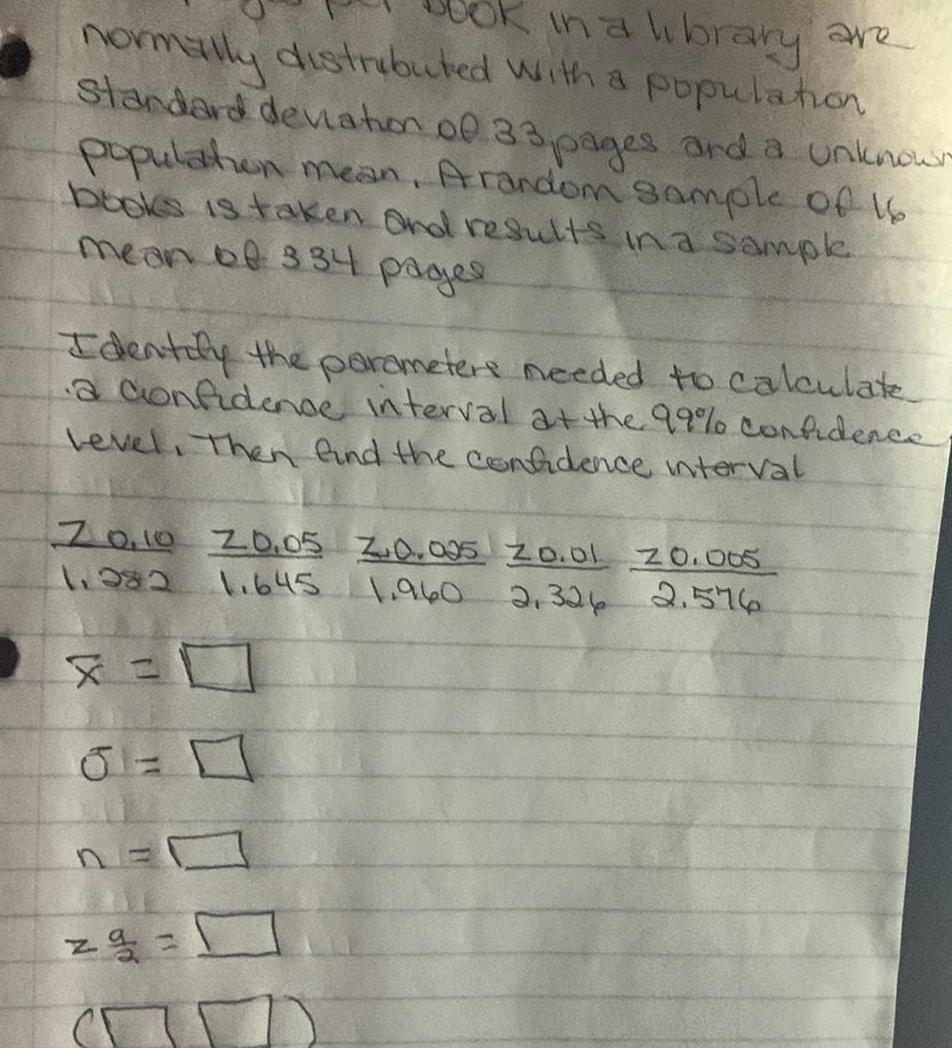 book in a library are
normally distributed with a population
standard deviation of 33 pages and a unknown
population mean. A random sample of 16
books is taken and results in a sample
mean of 334 pages
Identify the parameters needed to calculate
a confidence interval at the 99% confidence
level. Then find the confidence interval
Z0.10 Z0.05 Z0.025 Z0.01 Z0.005
1.282 1.645 1.960 2.326 2.576
x̄ =
σ =
n =
z a/2 =
( )